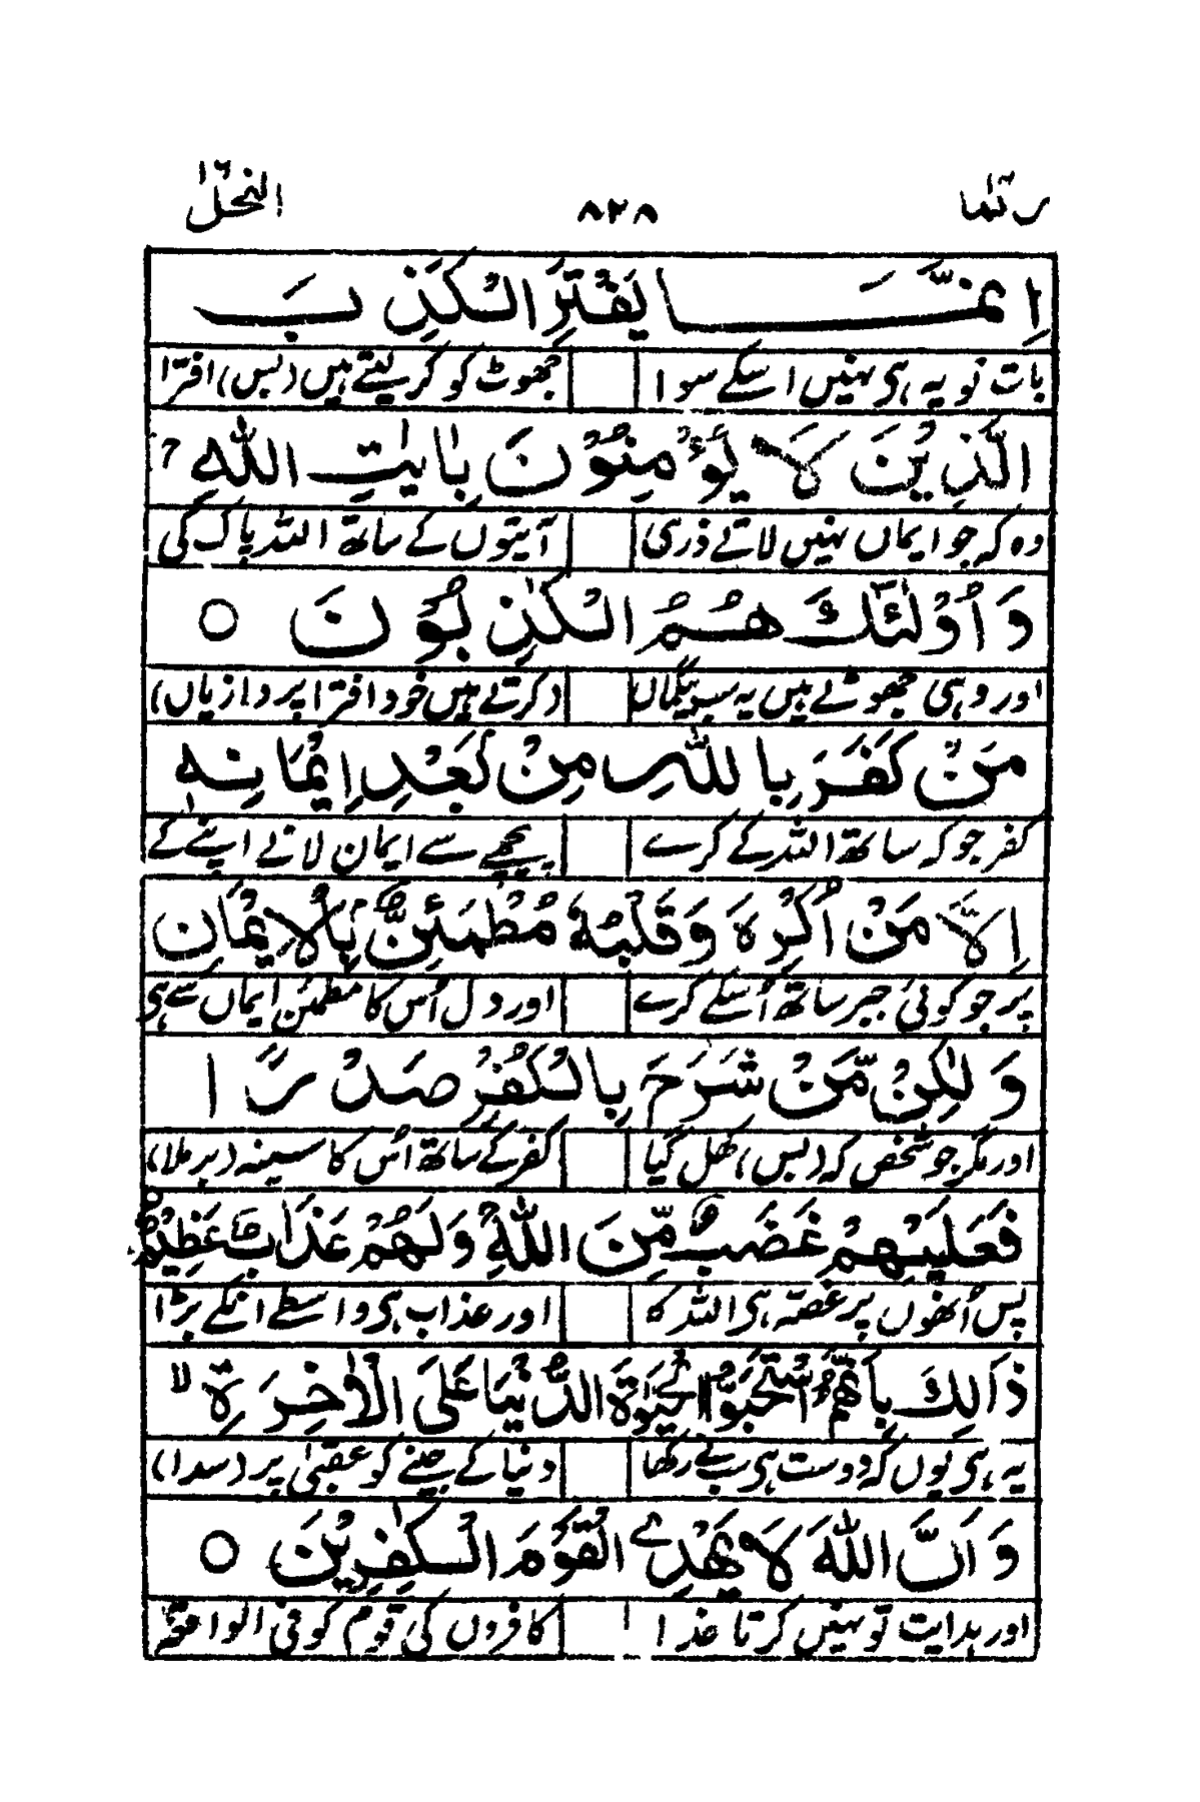 ربما ١٤ ٨٢٨ النحل ١٦
اِنَّمَا يَفْتَرِ الْكَذِبَ
بات تو یہ ہی نہیں اسکے سوا جھوٹ کو کر لیتے ہیں (بس) افترا
الَّذِيْنَ لَا يُؤْمِنُوْنَ بِاٰيٰتِ اللّٰهِ
وہ کہ جو ایماں نہیں لاتے ذری آیتوں کے ساتھ اللہ پاک کی
وَاُوْلٰٓئِكَ هُمُ الْكٰذِبُوْنَ ○
اور وہی جھوٹے ہیں یہ سب بیگماں (کرتے ہیں خود افترا پردازیاں)
مَنْ كَفَرَ بِاللّٰهِ مِنْۢ بَعْدِ اِيْمَانِهٖ
کفر جو کہ ساتھ اللہ کے کرے پیچھے سے ایمان لانے اپنے کے
اِلَّا مَنْ اُكْرِهَ وَقَلْبُهٗ مُطْمَئِنٌّۢ بِالْاِيْمَانِ
پر جو کوئی جبر ساتھ اُسکے کرے اور دل اُس کا مطمئن ایماں سے ہی
وَلٰكِنْ مَّنْ شَرَحَ بِالْكُفْرِ صَدْرًا
اور مگر جو شخص کہ (بس) کھل گیا کفر کے ساتھ اُس کا سینہ (برملا)
فَعَلَيْهِمْ غَضَبٌ مِّنَ اللّٰهِ وَلَهُمْ عَذَابٌ عَظِيْمٌ
پس اُنھوں پر غصّہ ہی اللہ کا اور عذاب ہی واسطے انکے بڑا
ذَالِكَ بِاَنَّهُمُ اسْتَحَبُّوا الْحَيٰوةَ الدُّنْيَا عَلَى الْاٰخِرَةِ لا
یہ ہی یوں کہ دوست ہی سب نے رکھا دنیا کے جینے کو عقبیٰ پر (سدا)
وَاَنَّ اللّٰهَ لَا يَهْدِى الْقَوْمَ الْكٰفِرِيْنَ ○
اور ہدایت تو نہیں کرتا خدا کافروں کی قوم کو فی الواقعہ